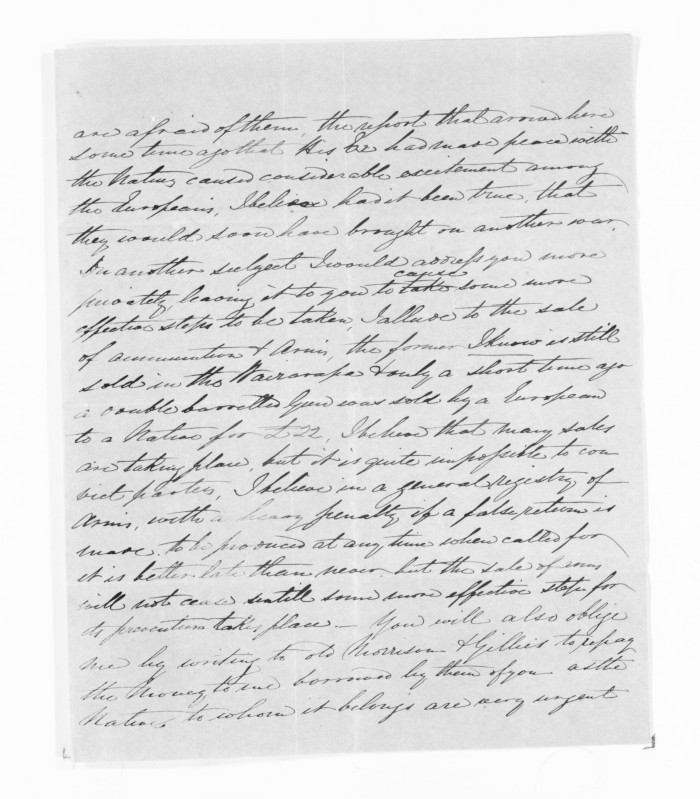 are afraid of them, the report that arrived here
some time ago that His Ex had made peace with
the Natives caused considerable excitement among
the Europeans, I believe had it been true, that
they would soon have brought on another war.
On another subject I would address you more
privately, leaving it to you to take cause some more
effective steps to be taken I allude to the sale
of ammunition & Arms, the former I know is still
sold in the Wairarapa & only a short time ago
a double barrelled Gun was sold by a European
to a Native for £22, I believe that many sales
are taking place, but it is quite impossible to con
vict parties, I believe in a general registry of
Arms, with a heavy penalty if a false return is
made, to be produced at any time when called for
it is better late than never, but the sale of arms
will not cease untill some more effective steps for
its prevention takes place — You will also oblige
me by writing to old Morrison & Gillies to repay
the Money to me borrowed by them of you as the
Natives to whom it belongs are very urgent